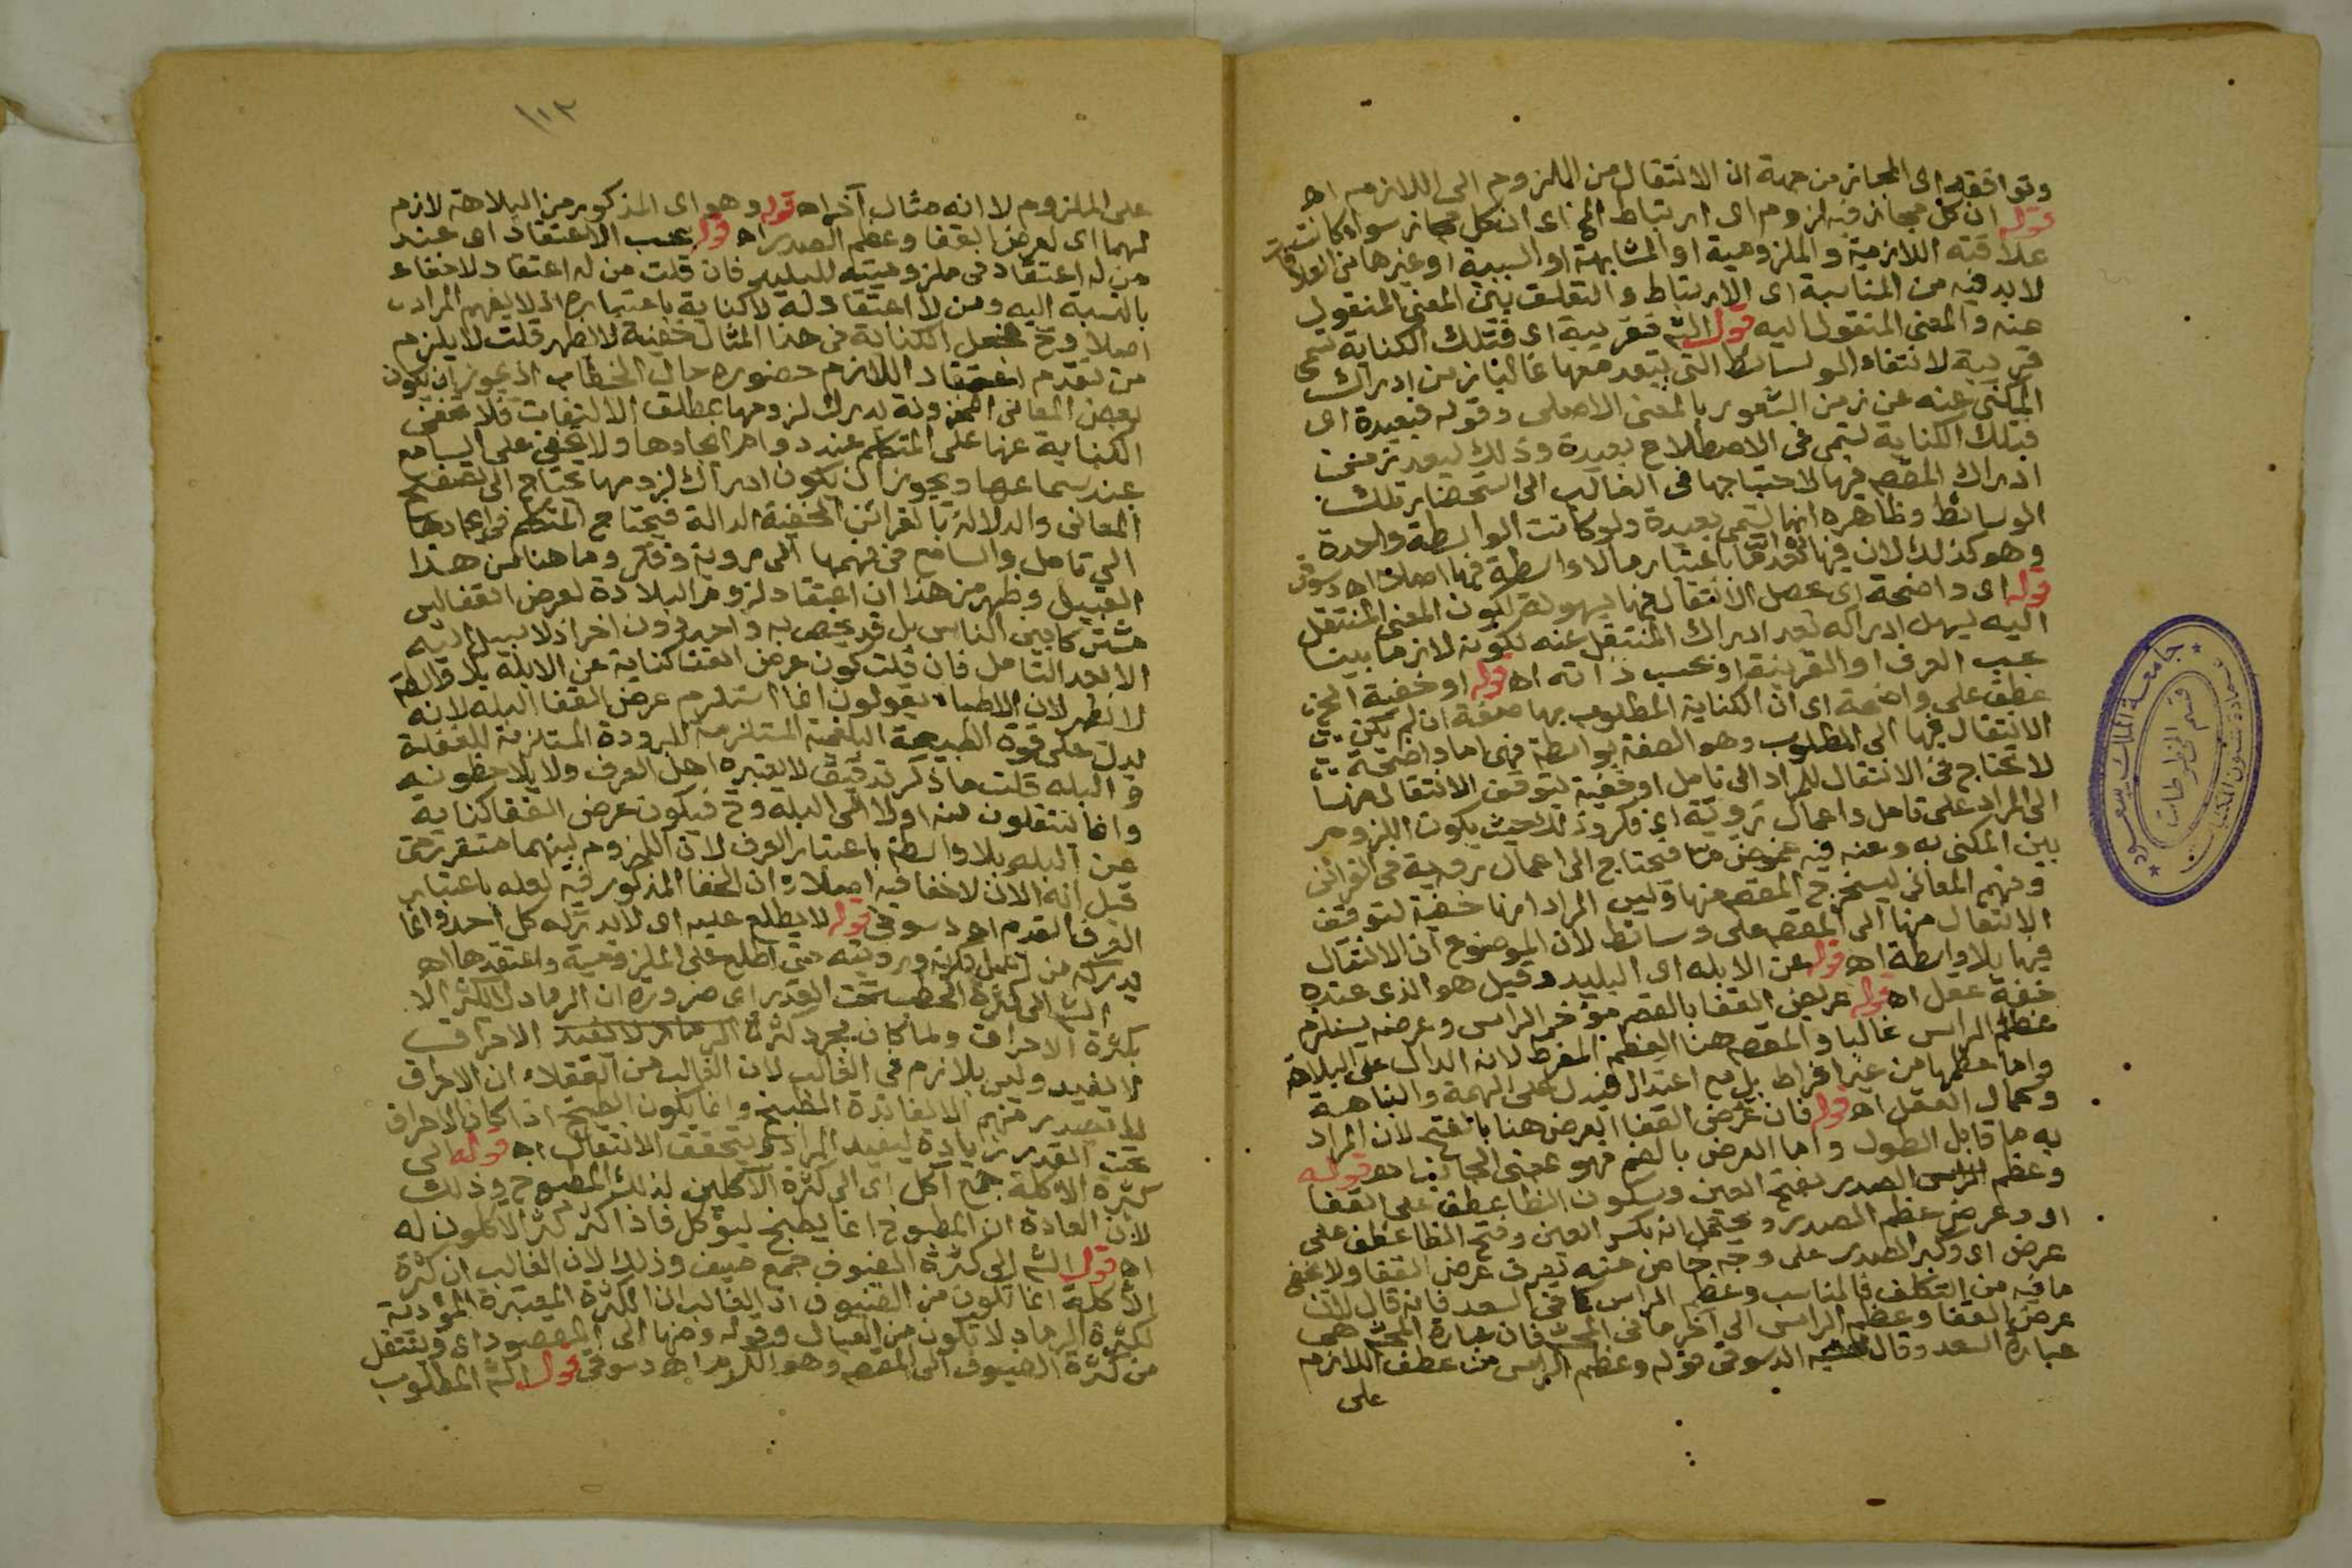 وتوافقه اى المجاز من جهة ان الانتقال من الملزوم الى اللازم اه
قوله ان كل مجاز فيه لزوم اى ارتباط الخ اى ان كل مجاز سواء كانت
علاقته اللازمية والملزومية او المشابهة او السببية او غيرها من العلاقات
لابد فيه من المناسبة اى الارتباط والتعلق بين المعنى المنقول
عنه والمعنى المنقول اليه قول الشم فقريبة اى فتلك الكناية تسمى
قريبة لانتفاء الوسائط التى يبعد معها غالبا زمن ادراك
المكنى عنه عن زمن الشعور بالمعنى الاصلى وقوله فبعيدة اى
فتلك الكناية تسمى فى الاصطلاح بعيدة وذلك لبعد زمن
ادراك المقصم فيها لاحتياجها فى الغالب الى استحضار تلك
الوسائط وظاهره انها تسمى بعيدة ولو كانت الواسطة واحدة
وهو كذلك لان فيها بعدا ما باعتبار ما لا واسطة فيها اصلا اه دسوقى
قوله اى واضحة اى يحصل الانتقال منها بسهولة لكون المعنى المنتقل
اليه يسهل ادراكه بعد ادراك المنتقل عنه لكونه لازما بينا
بحسب العرف او القرينة او بحسب ذاته اه قوله او خفية الخ
عطف على واضحة اى ان الكناية المطلوب بها صفة ان لم يكن
الانتقال فيها الى المطلوب وهو الصفة بواسطة فهى اما واضحة
لا تحتاج فى الانتقال للمراد الى تامل او خفية يتوقف الانتقال منها
الى المراد على تامل واعمال روية اى فكر وذلك حيث يكون اللزوم
بين المكنى به وعنه فيه غموض ما فيحتاج الى اعمال روية فى القرائن
وفهم المعانى ليستخرج المقصم منها وليس المراد انها خفية لتوقف
الانتقال منها الى المقصم على وسائط لان الموضوع ان الانتقال
فيها بلا واسطة اه قوله عن الابله اى البليد وقيل هو الذى عنده
خفة عقل اه قوله عريض القفا بالقصر مؤخر الراس وعرضه يستلزم
عظم الراس غالبا والمقصم هنا العظم المفرط لانه الدال على البلاهة
واما عظمها من غير افراط بل مع اعتدال فيدل على الهمة والنباهة
وكمال العقل اه قوله فان عرض القفا العرض هنا بالفتح لان المراد
به ما قابل الطول واما العرض بالضم فهو بمعنى الجانب اه قوله
وعظم الصدر بفتح العين وسكون الظا عطف على القفا
اى وعرض عظم الصدر ويحتمل انه بكسر العين وفتح الظا عطف على
عرض اى وكبر الصدر على وجه خاص منه يعرف عرض القفا ولا يخفى
ما فيه من التكلف فالمناسب وعظم الراس كما فى السعد فانه قال لان
عرض القفا وعظم الراس الى آخر ما فى المحشى فان عبارة المحشى هى
عبارة السعد وقال الدسوقى قوله وعظم الراس من عطف اللازم
على
١٠٣
على الملزوم لا انه مثال آخر اه قوله وهو اى المذكور من البلاهة لازم
لهما اى لعرض القفا وعظم الصدر اه قوله بحسب الاعتقاد اى عند
من له اعتقاد فى ملزوميته للبليد فان قلت من له اعتقاد لاخفاء
بالنسبة اليه ومن لا اعتقاد له لا كناية باعتباره اذ لا يفهم المراد
اصلا وح فجعل الكناية فى هذا المثال خفية لا يظهر قلت لا يلزم
من تقدم اعتقاد اللازم حضوره حال الخطاب اذ يجوز ان يكون
بعض المعانى المخزونة يدرك لزومها بمطلق الالتفات فلا تخفى
الكناية عنها على المتكلم عند روام ايجادها ولا يخفى على السامع
عند سماعها ويجوز ان يكون ادراك لزومها يحتاج الى تصفح
المعانى والدلالة بالقرائن الخفية الدالة فيحتاج المتكلم فى ايجادها
الى تامل والسامع فى فهمها الى روية وفكر وما هنا من هذا
القبيل وظهر من هذا ان اعتقاد لزوم البلادة لعرض القفا ليس
مشتركا بين الناس بل قد يختص به واحد دون اخر اذ لا سبيل اليه
الا بعد التامل فان قلت كون عرض القفا كناية عن الابله بلا واسطة
لا يظهر لان الاطباء يقولون انما استلزم عرض القفا البله لانه
يدل على قوة الطبيعة البلغمية المستلزمة للبرودة المستلزمة للغفلة
والبله قلت ما ذكر تدقيق لا يعتبره اهل العرف ولا يلاحظونه
وانما ينتقلون منه اولا الى البله وح فيكون عرض القفا كناية
عن البله بلا واسطة باعتبار العرف لان اللزوم بينهما متقرر حتى
قيل انه الان لاخفا فيه اصلا وان الخفا المذكور فيه لعله باعتبار
العرف القديم اه دسوقى قوله لا يطلع عليه اى لا يدركه كل احد وانما
يدركه من اعمل فكرته ورويته حتى اطلع على الملزومية واعتقدها اه
الشم الى كثرة الحطب تحت القدر اى ضرورة ان الرماد لا يكثر الا
بكثرة الاحراق ولما كان مجرد كثرة الرماد لا تفيد الاحراق
لا تفيد وليس بلازم فى الغالب لان الغالب من العقلاء ان الاحراق
لا يصدر منهم الا لفائدة الطبخ وانما يكون الطبخ اذا كان الاحراق
تحت القدر زيادة ليفيد المراد ويتحقق الانتقال اه قوله الى
كثرة الاكلة جمع آكل اى الى كثرة الآكلين لذلك المطبوخ وذلك
لان العادة ان المطبوخ انما يطبخ ليؤكل فاذا كثر كثر الاكلون له
اه قول الشم الى كثرة الضيوف جمع ضيف وذلك لان الغالب ان كثرة
الاكلة انما تكون من الضيوف اذ الغالب ان الكثرة المعتبرة المؤدية
لكثرة الرماد لا تكون من العيال وقوله ومنها الى المقصود اى وينتقل
من كثرة الضيوف الى المقصم وهو الكرم اه دسوقى قول الشم المطلوب
جامعة الملك سعود
عمادة شئون المكتبات
قسم المخطوطات